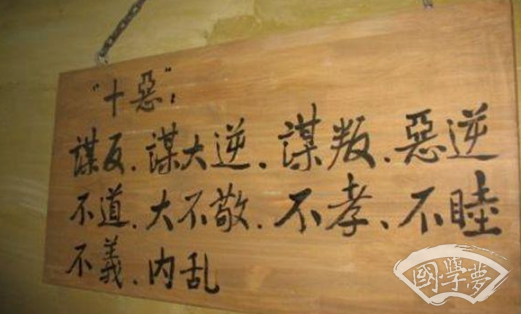 “十惡”：
謀反、謀大逆、謀叛、惡逆
不道、大不敬、不孝、不睦
不義、内乱
國學夢